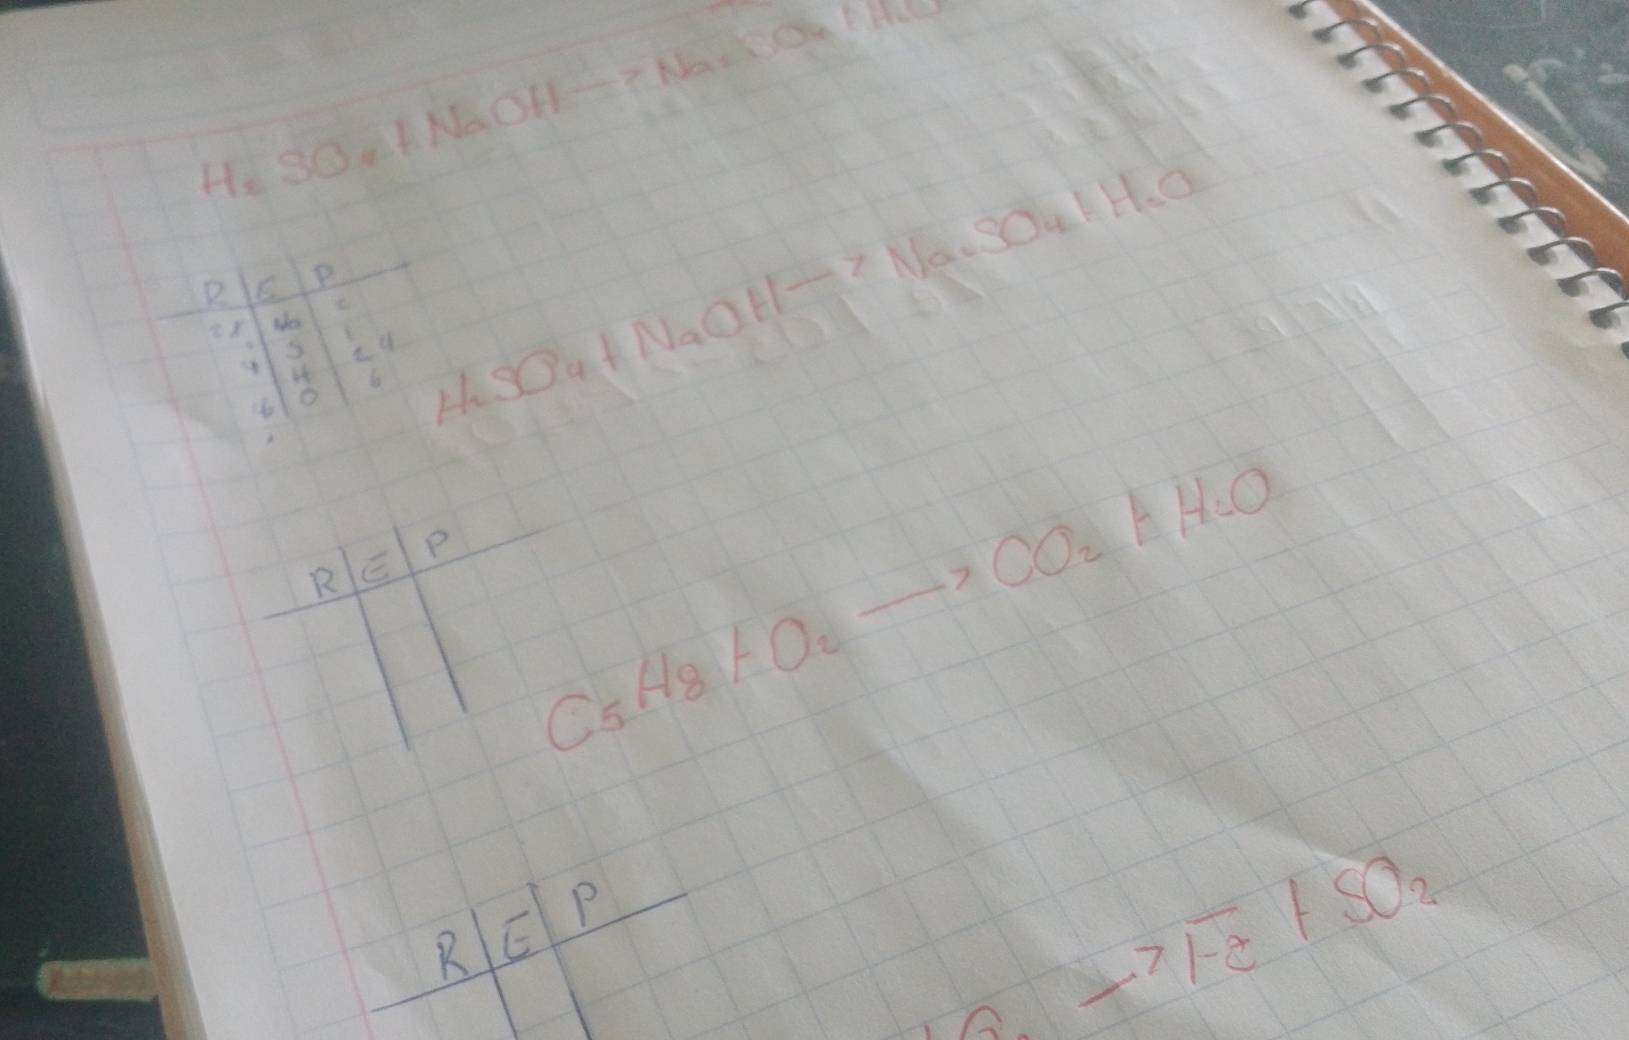 H₂ SO₄ + NaOH → Na₂ SO₄ + H₂O
R E P
Na 2
S 1
4 H 2 4
O 6
H₂SO₄ + NaOH → Na₂SO₄ + H₂O
R E P
C₅H₈ + O₂ → CO₂ + H₂O
R E P
→ Fe + SO₂